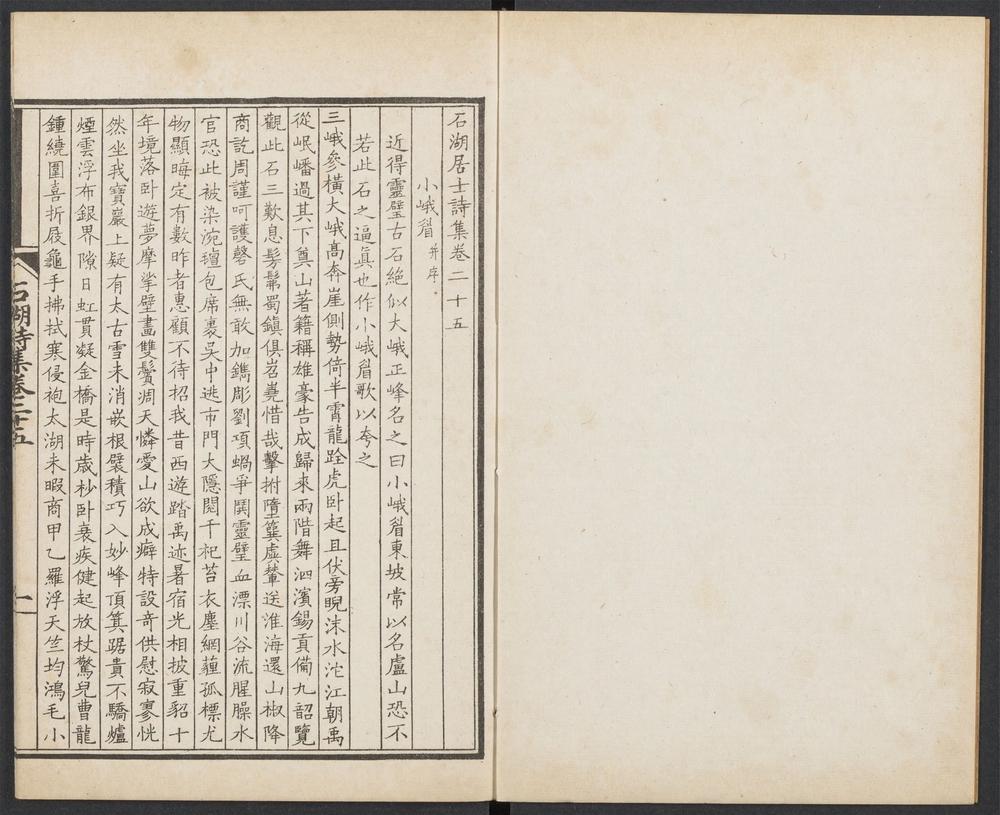 石湖居士詩集卷二十五
小峨眉并序
近得靈璧古石絶似大峨正峰名之曰小峨眉東坡常以名廬山恐不
若此石之逼真也作小峨眉歌以夸之
三峨參橫大峨高奔崖側勢倚半霄龍跧虎卧起且伏旁睨沫水沱江朝禹
從岷嶓過其下奠山著籍稱雄豪告成歸來兩階舞泗濱錫貢備九韶覽
觀此石三歎息髣髴蜀鎮俱岧嶤惜哉擊拊墮簨虡輦送淮海還山椒降
商訖周謹呵護磬氏無敢加鐫彫劉項蝸爭鬭靈璧血漂川谷流腥臊水
官恐此被染涴璮包席裹吴中逃市門大隱閱千祀苔衣塵網蘿孤標尤
物顯晦定有數昨者惠顧不待招我昔西遊踏禹迹暑宿光相披重貂十
年境落卧遊夢摩挲壁畫雙鬢凋天憐愛山欲成癖特設奇供慰寂寥恍
然坐我寶巖上疑有太古雪未消嵌根襞積巧入妙峰頂箕踞貴不驕爐
煙雲浮布銀界隙日虹貫凝金橋是時歲杪卧衰疾健起放杖驚兒曹龍
鍾繞圍喜折屐龜手拂拭寒侵袍太湖未暇商甲乙羅浮天竺均鴻毛小
石湖詩集卷二十五
一